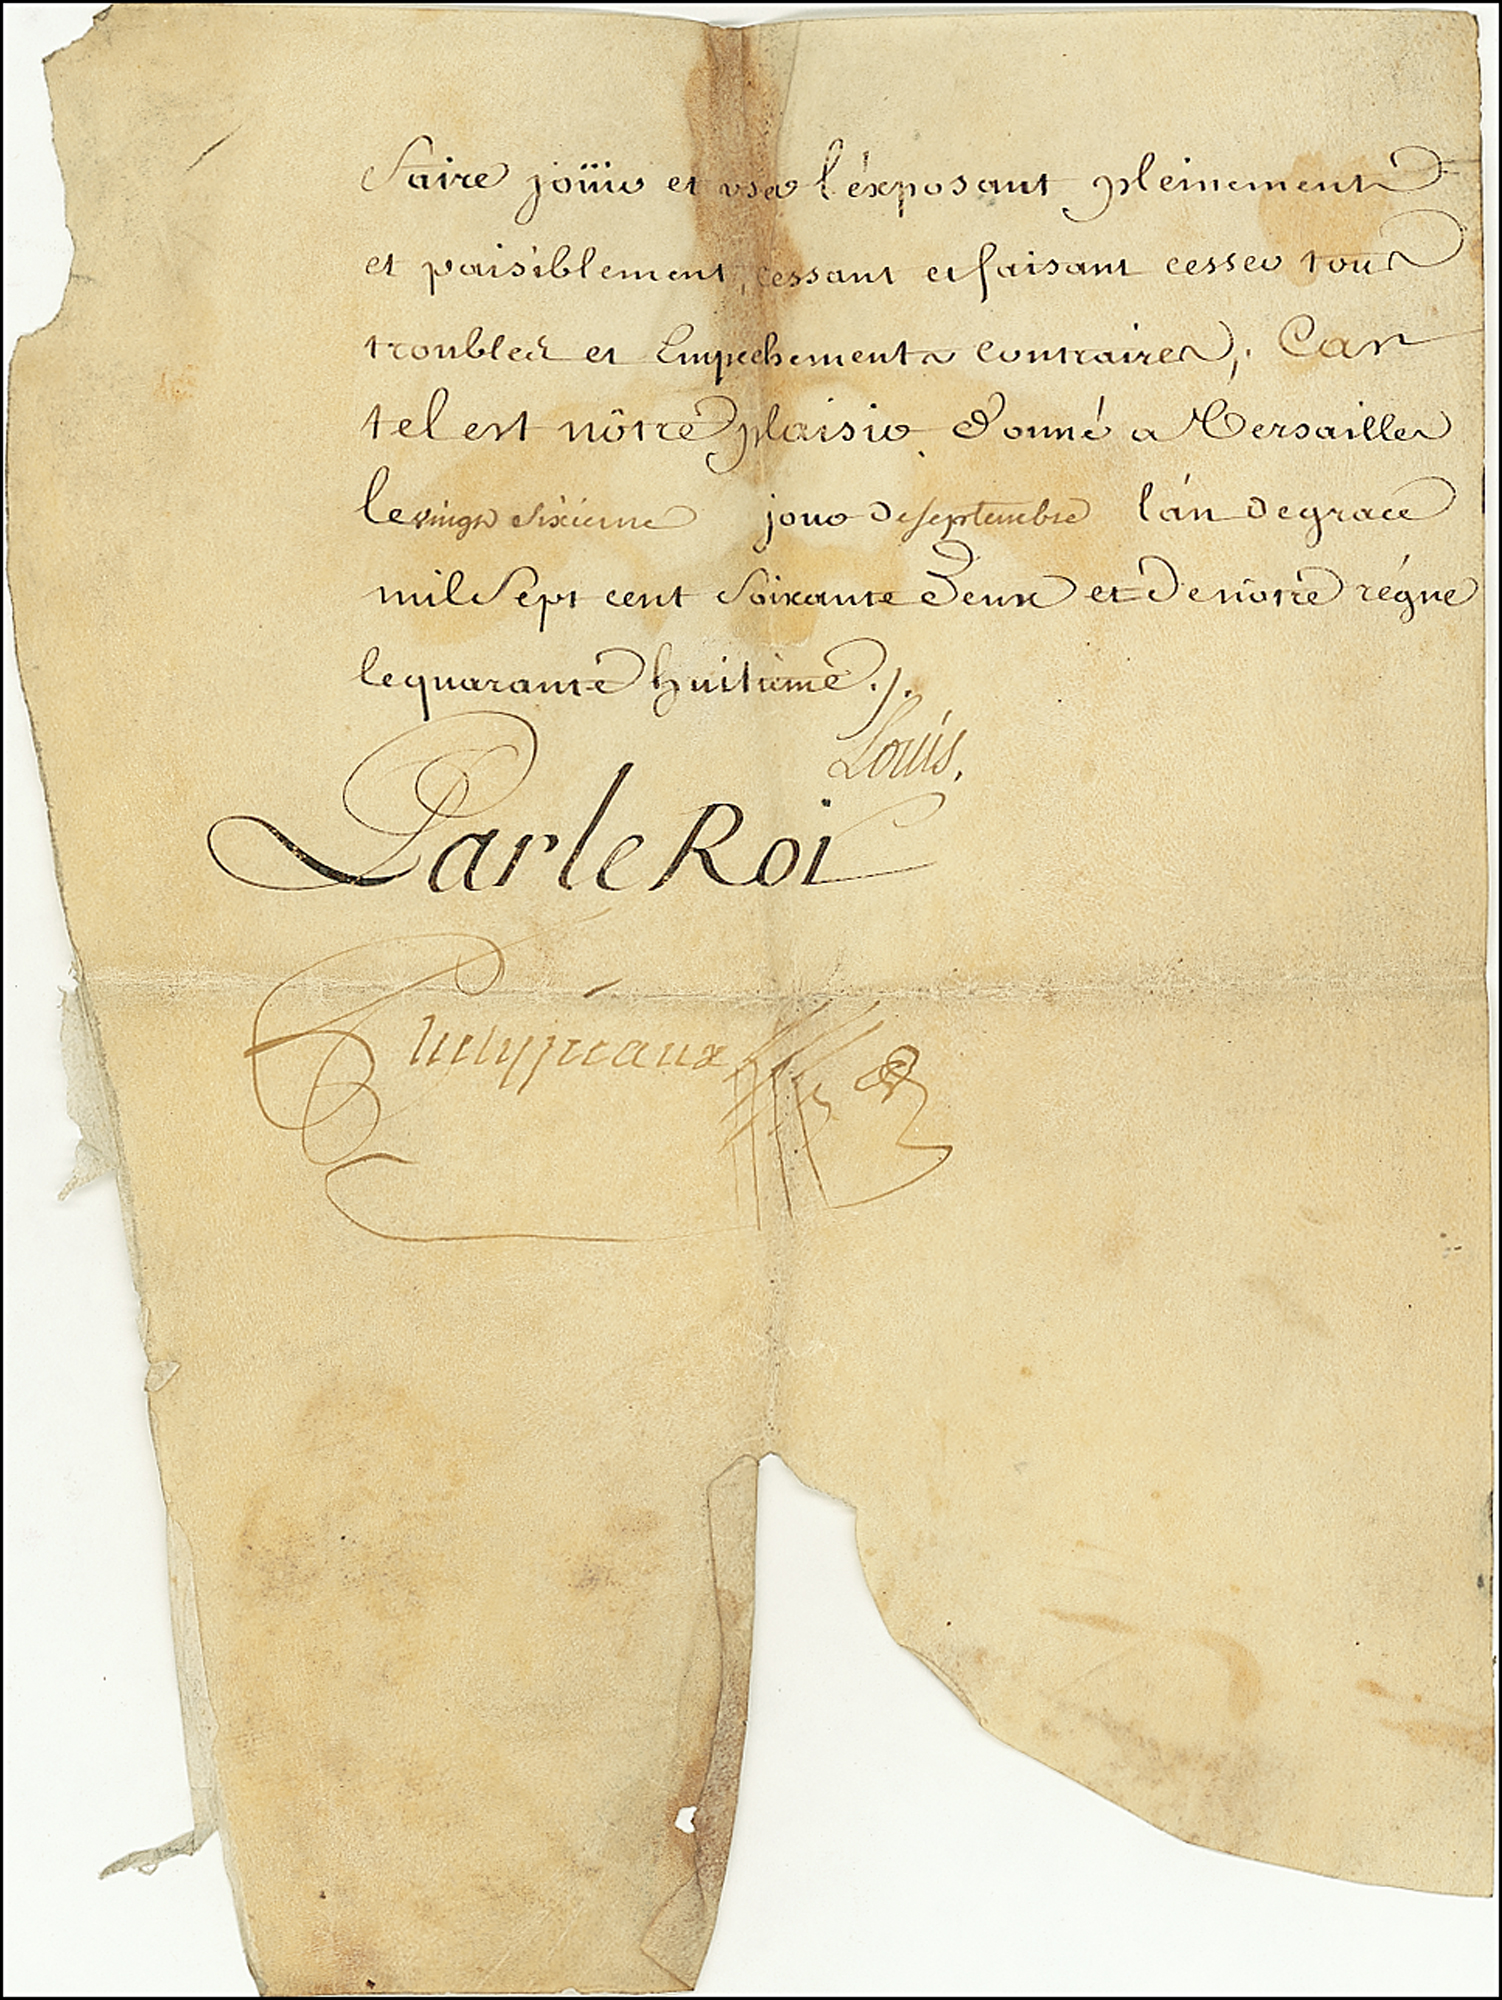 Faire joüir et user l'éxposant pleinement
et paisiblement, cessant et faisant cesser tous
troubles et Empechements contraires; Car
tel est nôtre plaisir. Donné a Versailles
le vingt sixieme jour de septembre l'an de grace
mil Sept cent Soixante Deux et de nôtre régne
le quarante huitieme ./.
Louis.
Par le Roi
Phelypeaux